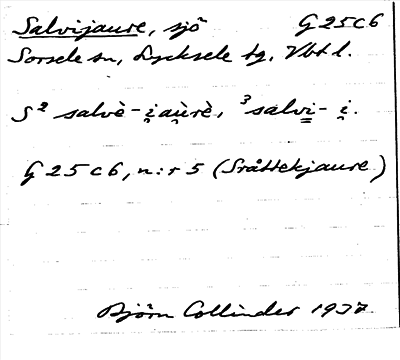 Salvijaure, sjö G25c6
Sorsele sn, Lycksele tg, Vbt l.
S² salvè-i̯au̯rè, ³salvi-i̯.
G25c6, n:r 5 (Sråttekjaure)
Björn Collinder 1937